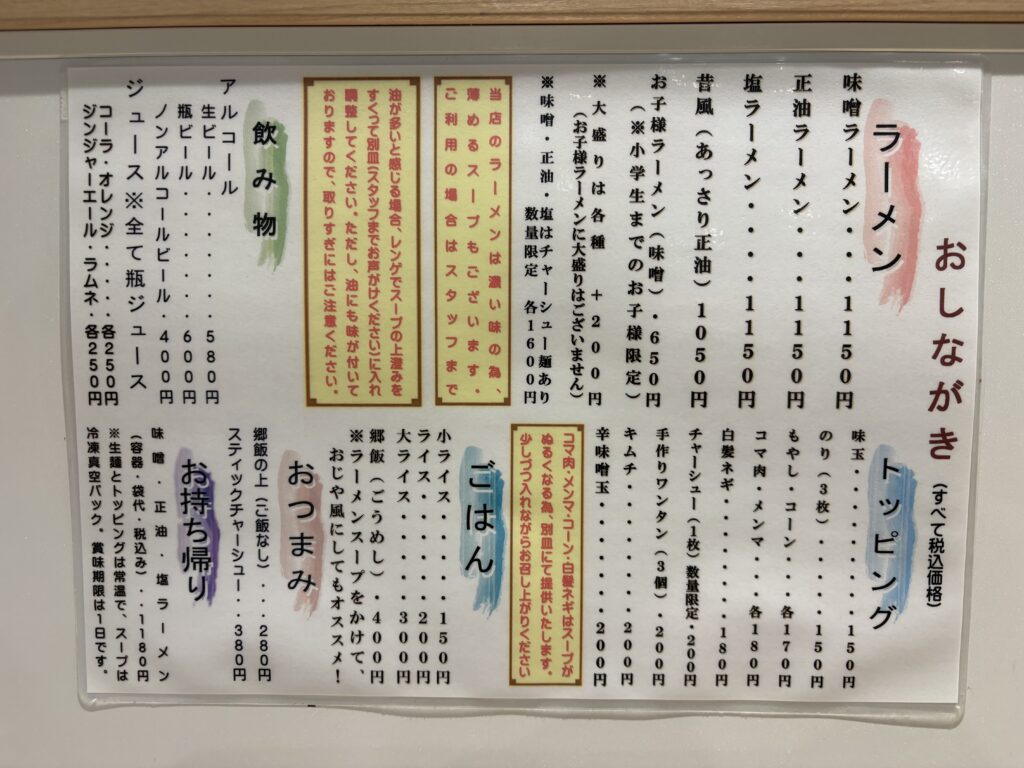 おしながき（すべて税込価格）
ラーメン
味噌ラーメン・・・1150円
正油ラーメン・・・1150円
塩ラーメン・・・・1150円
昔風（あっさり正油）1050円
お子様ラーメン（味噌）・650円
（※小学生までのお子様限定）
※大盛りは各種 +200円
（お子様ラーメンに大盛りはございません）
※味噌・正油・塩はチャーシュー麺あり
数量限定 各1600円
当店のラーメンは濃い味の為、
薄めるスープもございます。
ご利用の場合はスタッフまで
油が多いと感じる場合、レンゲでスープの上澄みを
すくって別皿(スタッフまでお声がけください)に入れ
調整してください。ただし、油にも味が付いて
おりますので、取りすぎにはご注意ください。
飲み物
アルコール
生ビール・・・・・・580円
瓶ビール・・・・・・600円
ノンアルコールビール・400円
ジュース※全て瓶ジュース
コーラ・オレンジ・・・・各250円
ジンジャーエール・ラムネ・各250円
トッピング
味玉・・・・・・・・150円
のり（3枚）・・・・・150円
もやし・コーン・・・各170円
コマ肉・メンマ・・・各180円
白髪ネギ・・・・・・・180円
チャーシュー（1枚）数量限定・200円
手作りワンタン（3個）・200円
キムチ・・・・・・・200円
辛味噌玉・・・・・・200円
コマ肉・メンマ・コーン・白髪ネギはスープが
ぬるくなる為、別皿にて提供いたします。
少しづつ入れながらお召し上がりください
ごはん
小ライス・・・・・150円
ライス・・・・・・200円
大ライス・・・・・300円
郷飯（ごうめし）・400円
※ラーメンスープをかけて、
おじや風にしてもオススメ！
おつまみ
郷飯の上（ご飯なし）・・・280円
スティックチャーシュー・・・380円
お持ち帰り
味噌・正油・塩ラーメン
（容器・袋代・税込み）・・1180円
※生麺とトッピングは常温で、スープは
冷凍真空パック。賞味期限は1日です。